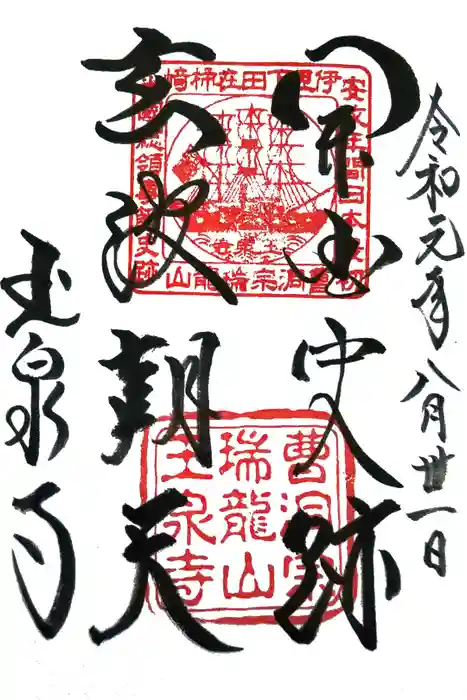 令和元年八月卅一日
開国史跡
朝天
玉泉寺
伊豆下田在柿崎
安政年間日本最初
米國總領事館史跡
曹洞宗瑞龍山
玉泉寺
曹洞宗
瑞龍山
玉泉寺